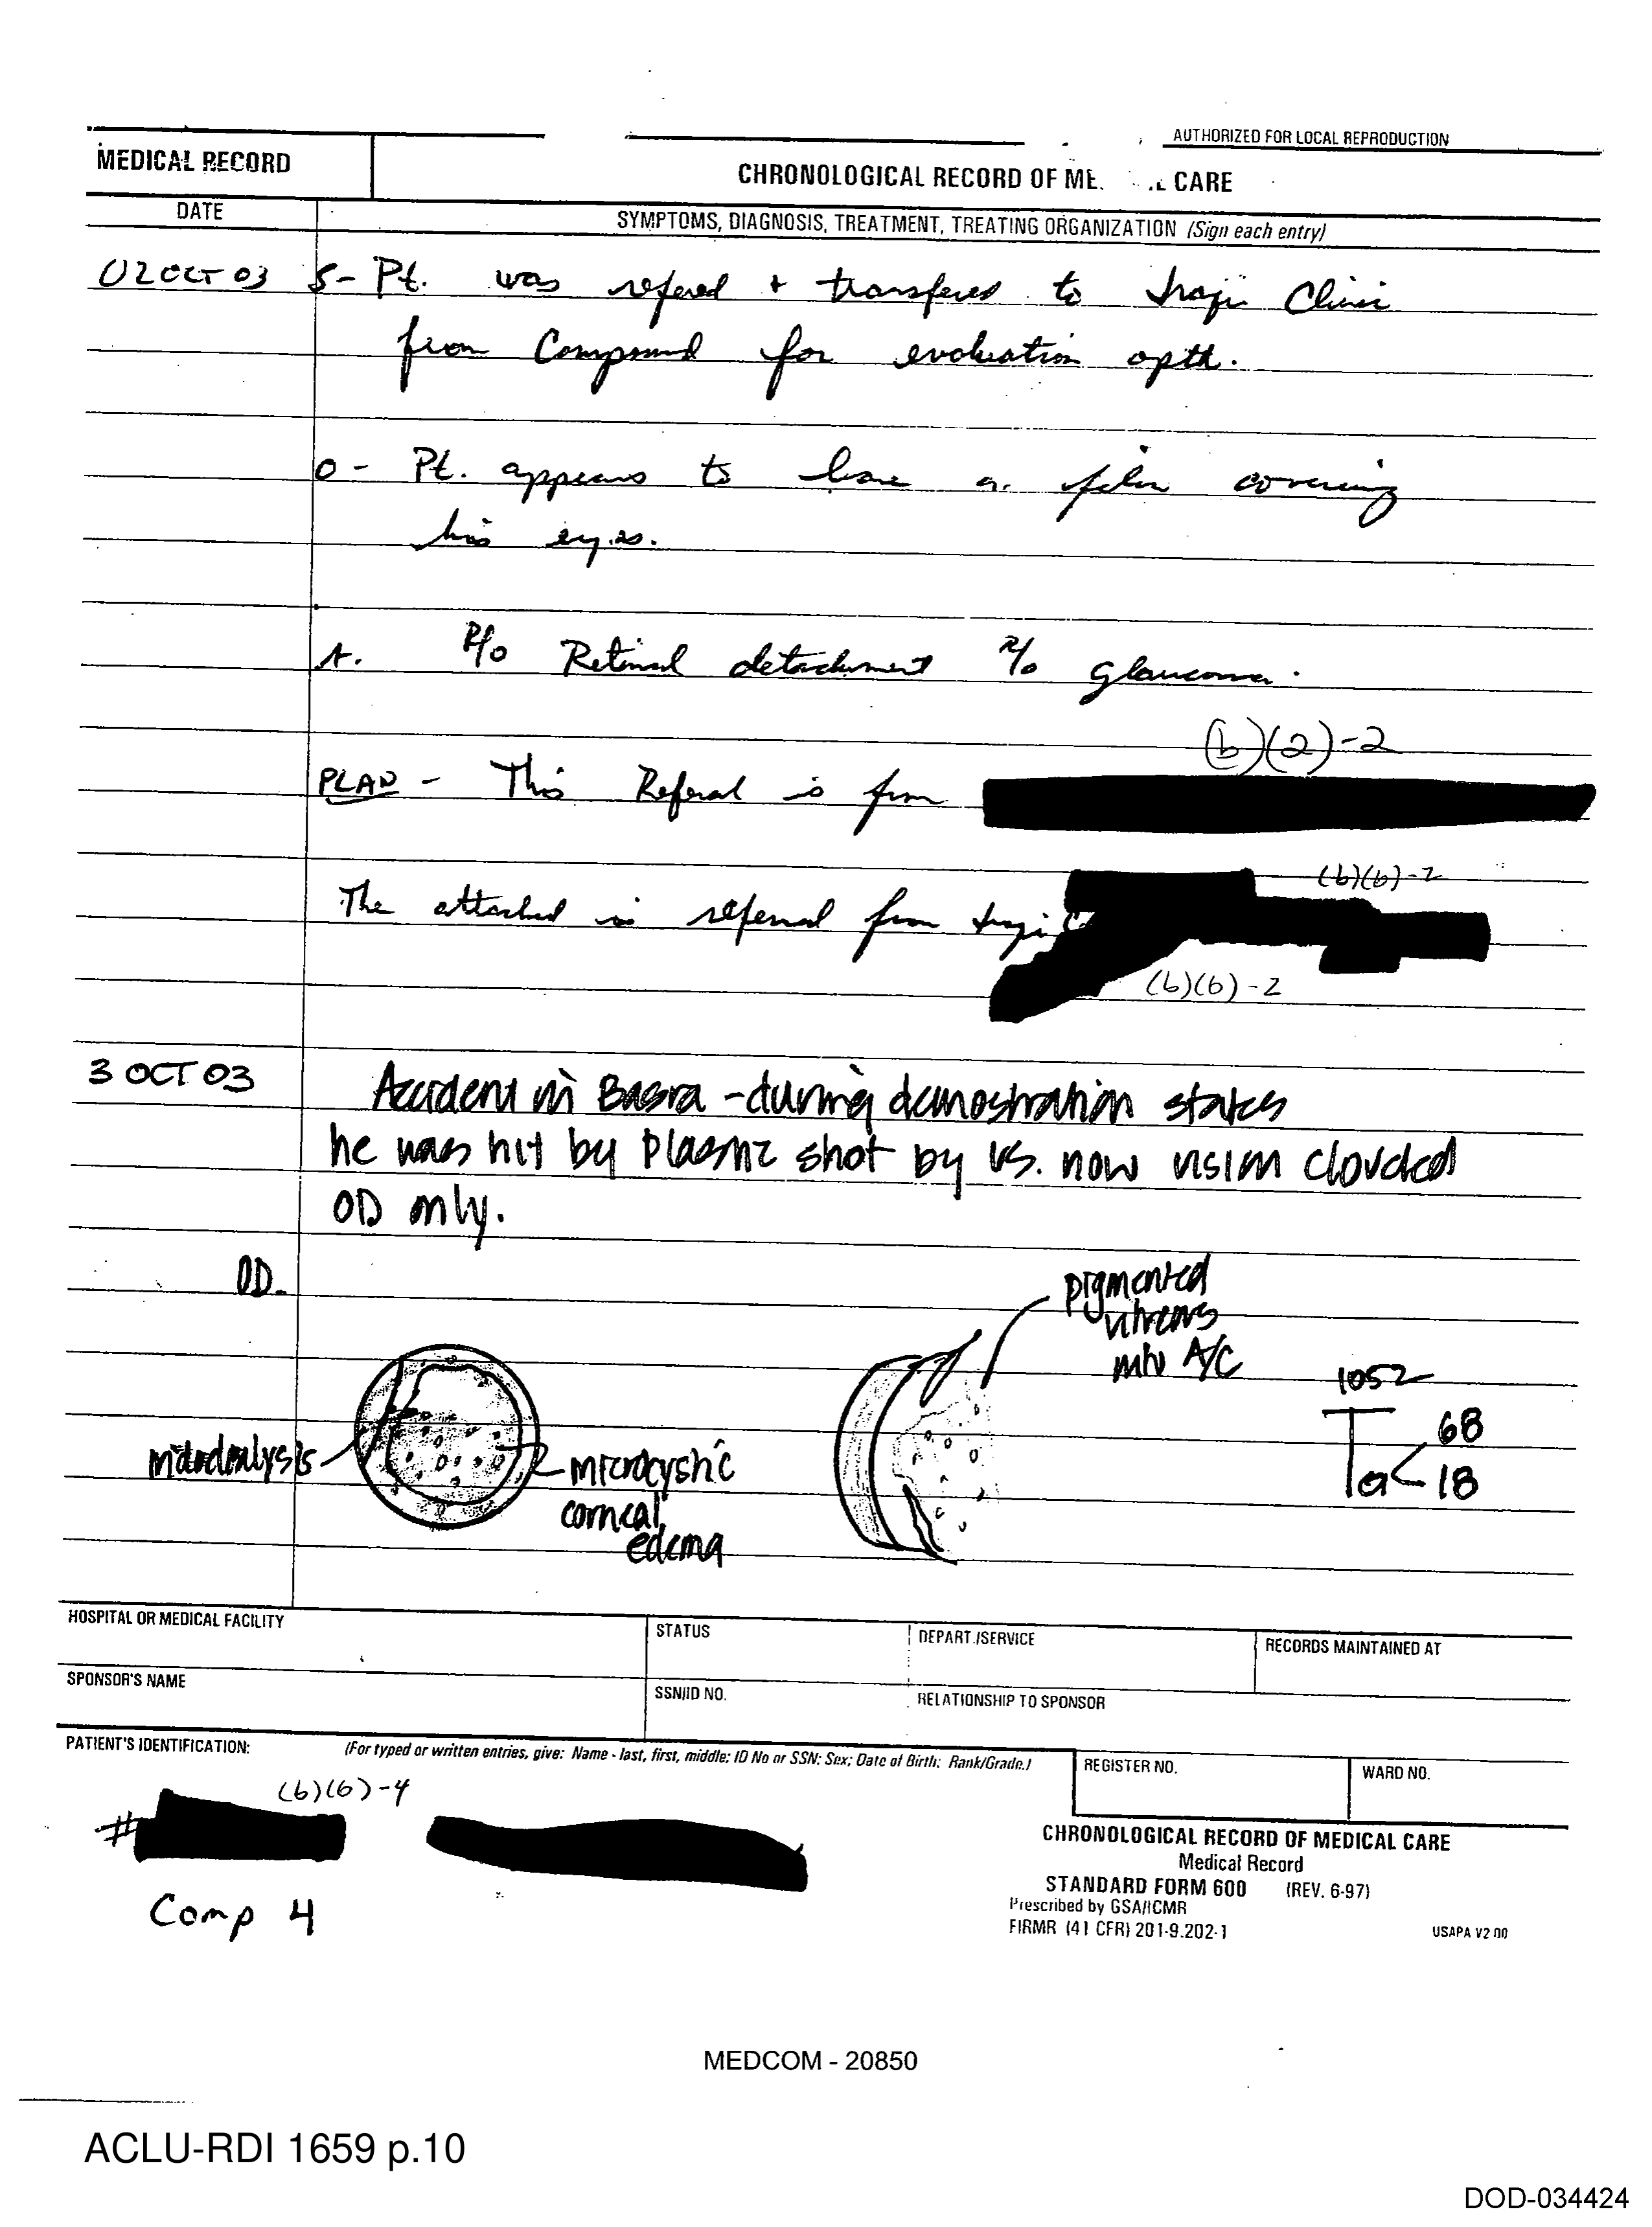 AUTHORIZED FOR LOCAL REPRODUCTION
MEDICAL RECORD
CHRONOLOGICAL RECORD OF ME. CARE
DATE
SYMPTOMS, DIAGNOSIS, TREATMENT, TREATING ORGANIZATION (Sign each entry)
02 OCT 03 S- Pt. was refered + transfered to Iraqi Clinic
from Compound for evaluation opth.
O- Pt. appears to have a film covering
his eyes.
A. R/o Retinal detachment R/o glaucoma.
(b)(2)-2
PLAN - This Referal is from
(b)(6)-2
The attached is referral from Iraqi
(b)(6)-2
3 OCT 03 Accident in Basra - during demostration states
he was hit by plastic shot by US. now vision clouded
OD only.
OD.
pigmented
vitreous
into A/C
1052
T 68
Ta < 18
iridodialysis
microcystic
corneal
edema
HOSPITAL OR MEDICAL FACILITY
STATUS
DEPART./SERVICE
RECORDS MAINTAINED AT
SPONSOR'S NAME
SSN/ID NO.
RELATIONSHIP TO SPONSOR
PATIENT'S IDENTIFICATION: (For typed or written entries, give: Name - last, first, middle; ID No or SSN; Sex; Date of Birth; Rank/Grade.)
REGISTER NO.
WARD NO.
(b)(6)-4
#
Comp 4
CHRONOLOGICAL RECORD OF MEDICAL CARE
Medical Record
STANDARD FORM 600 (REV. 6-97)
Prescribed by GSA/ICMR
FIRMR (41 CFR) 201-9.202-1
USAPA V2.00
MEDCOM - 20850
ACLU-RDI 1659 p.10
DOD-034424